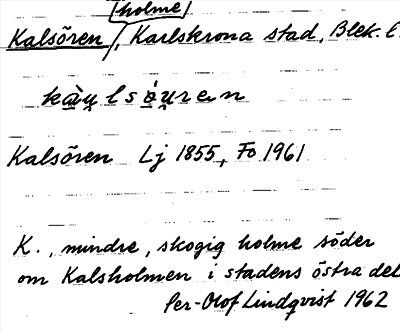 holme
Kalsören, Karlskrona stad, Blek. l.
kàu̯lsòu̯ren
Kalsören Lj 1855, Fo 1961
K., mindre, skogig holme söder
om Kalsholmen i stadens östra del
Per-Olof Lindqvist 1962